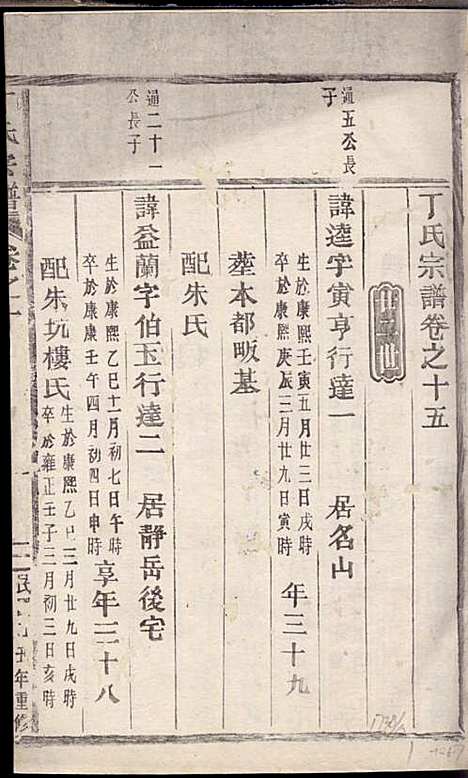 丁氏宗譜卷之十五
通五公長
子
諱逵字寅亨行達一 居名山
生於康熙壬寅五月廿三日戌時
卒於康熙庚辰三月廿九日寅時
年三十九
塟本都畈基
配朱氏
通二十一
公長子
諱益蘭字伯玉行達二 居靜岳後宅
生於康熙乙巳十一月初七日午時
卒於康熙壬午四月初四日申時
享年三十八
配朱坑樓氏
生於康熙乙巳三月廿九日戌時
卒於雍正壬子二月初三日亥時
丑年重修